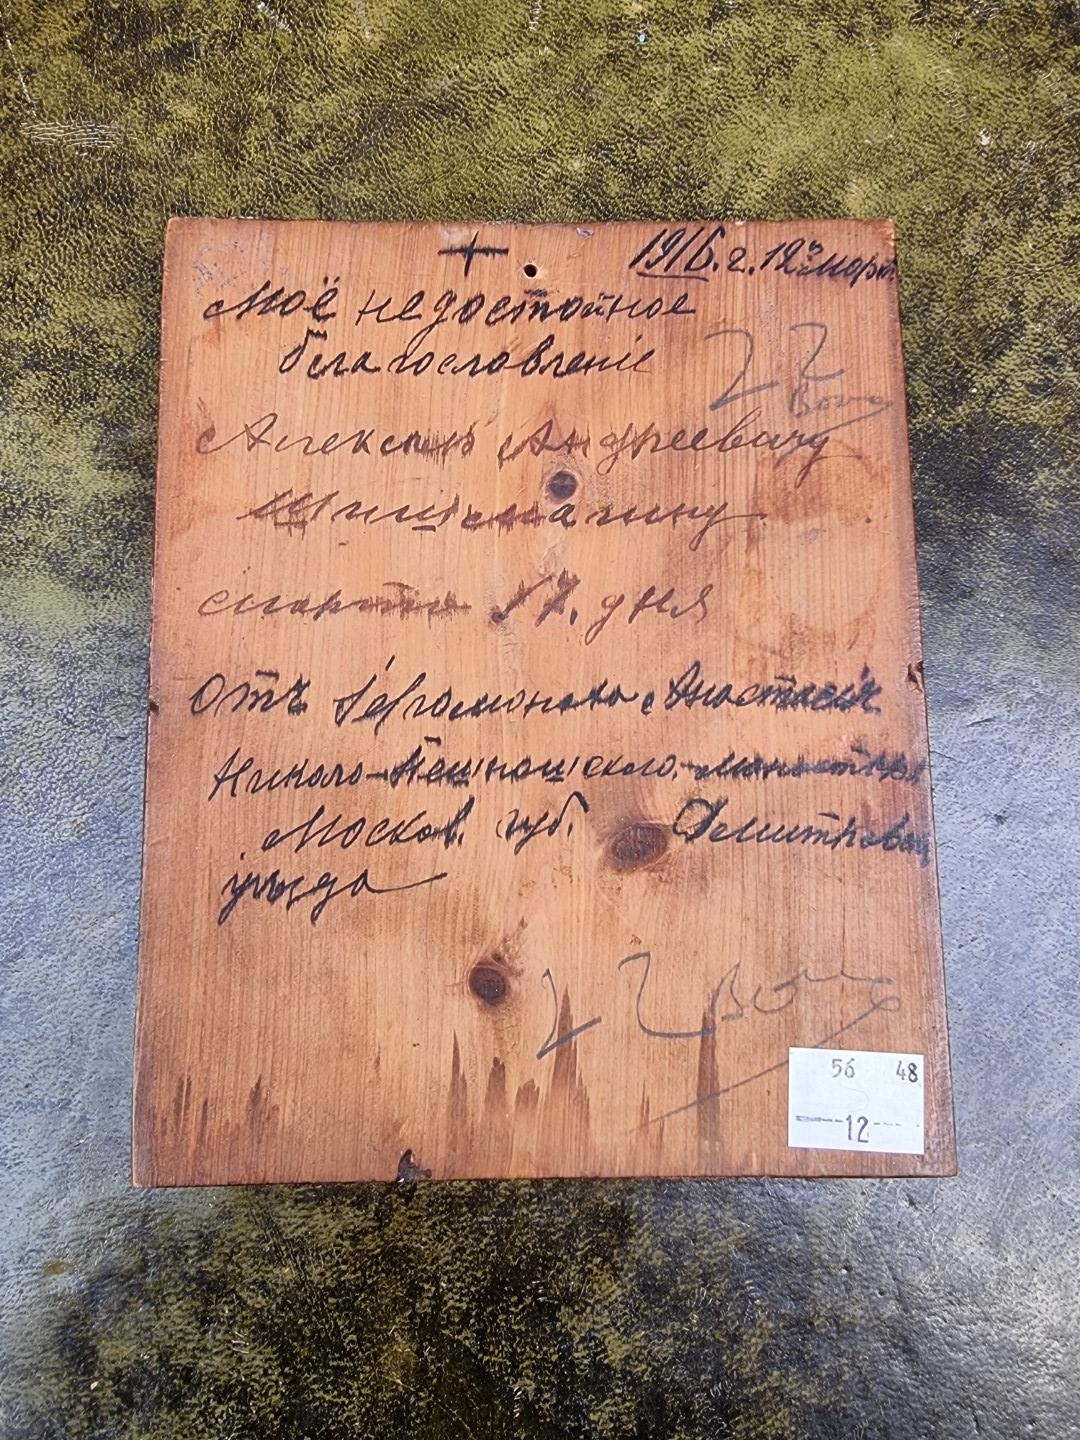 1916. г. 12го март.
Моё недостойное
благословленіе
22
Алексѣю Андреевичу
марта 17. дня
Отъ Іеромонаха Анастасія
Николо-Пешношскаго монастыря
Москов. губ. Дмитровск
уѣзда
22
56 48
12